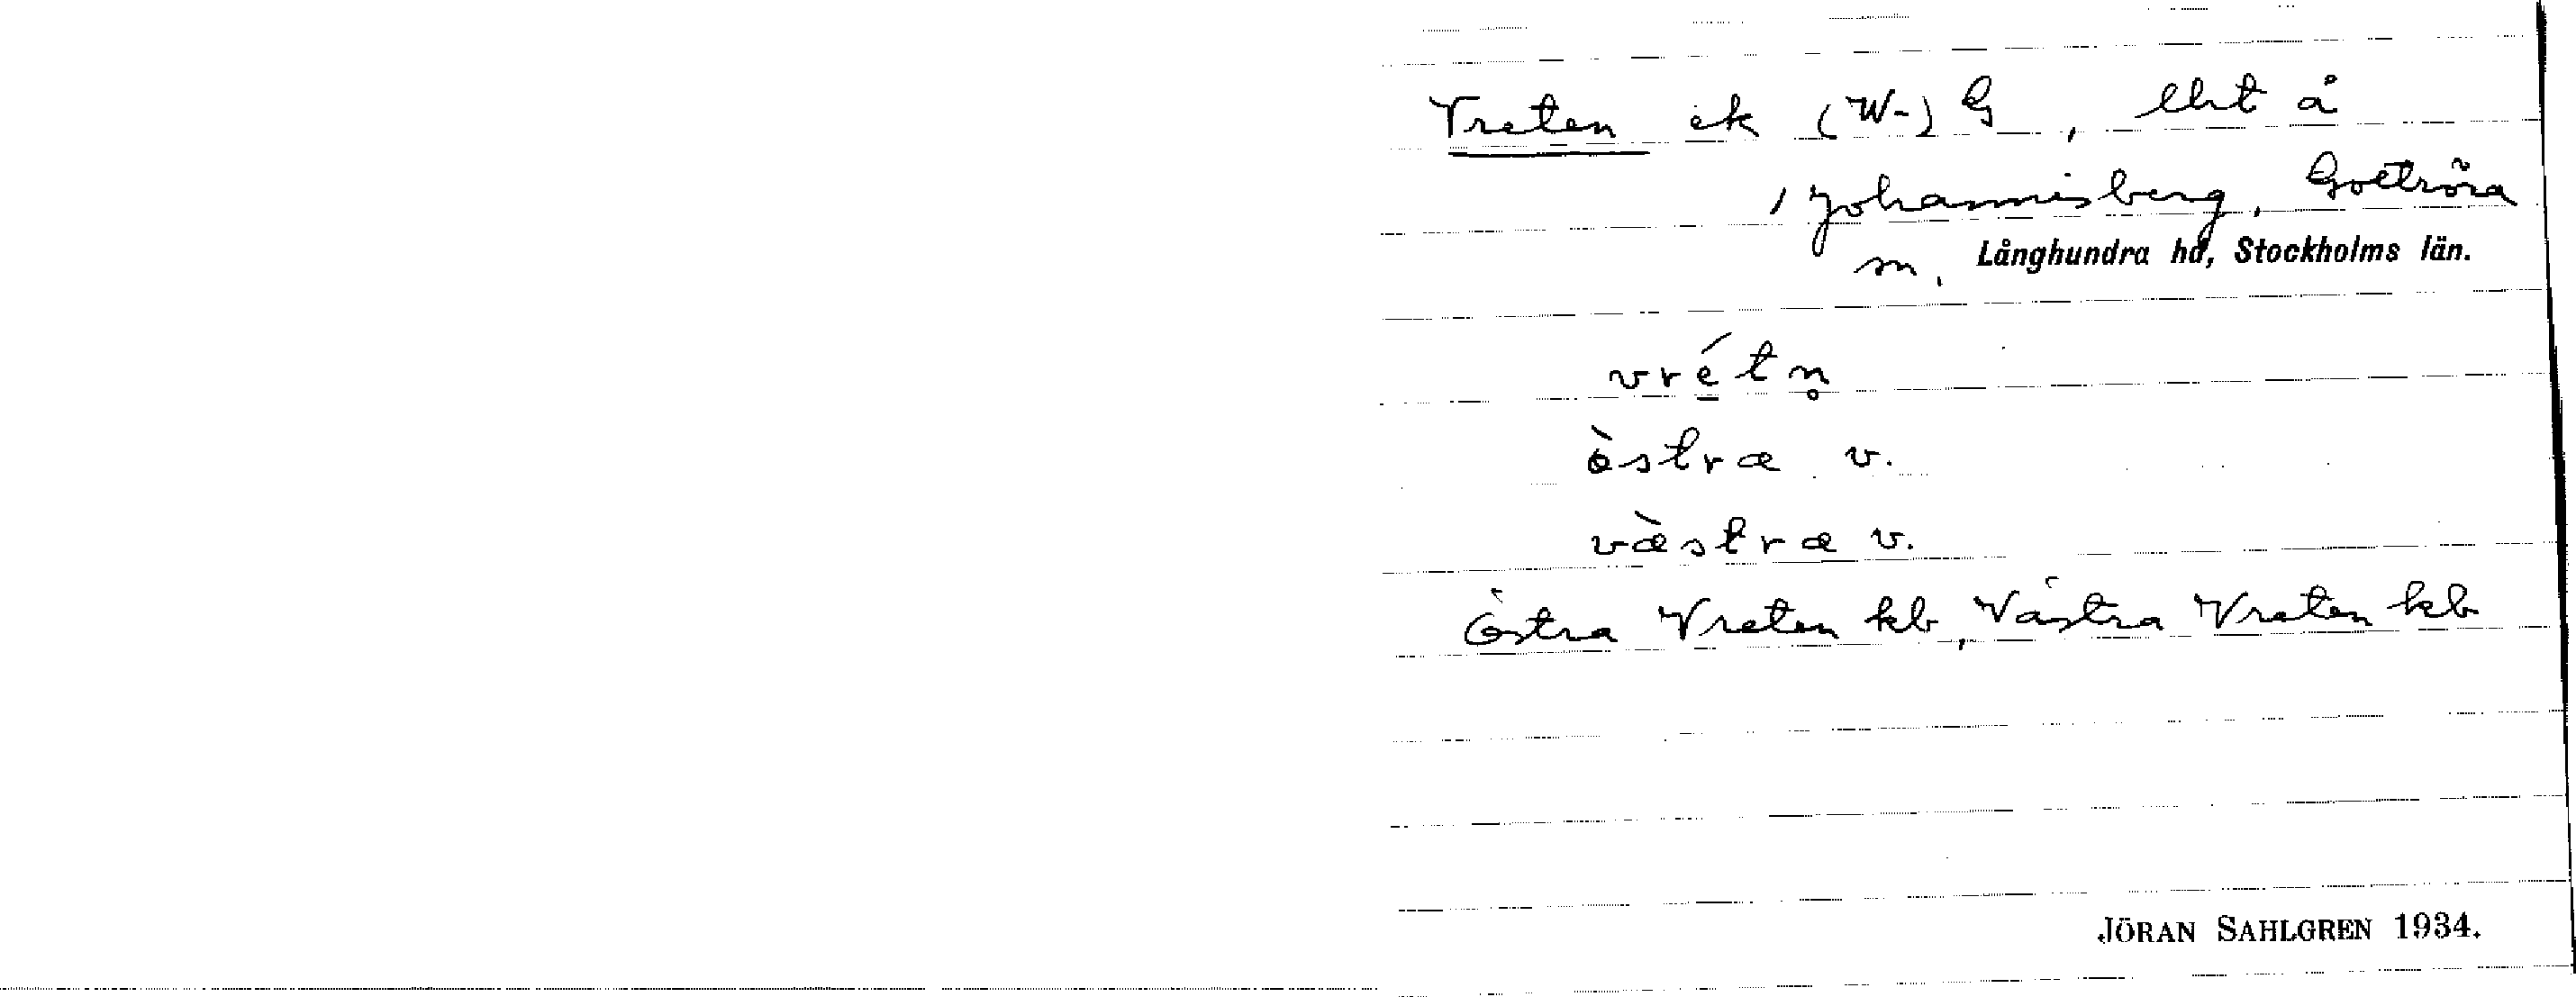 Vreten ek (W-) G, lht å
Johannisberg, Gottröra
sn, Långhundra hd, Stockholms län.
vrétn̥
östra v.
vàstra v.
Östra Vreten kb, Västra Vreten kb
JÖRAN SAHLGREN 1934.